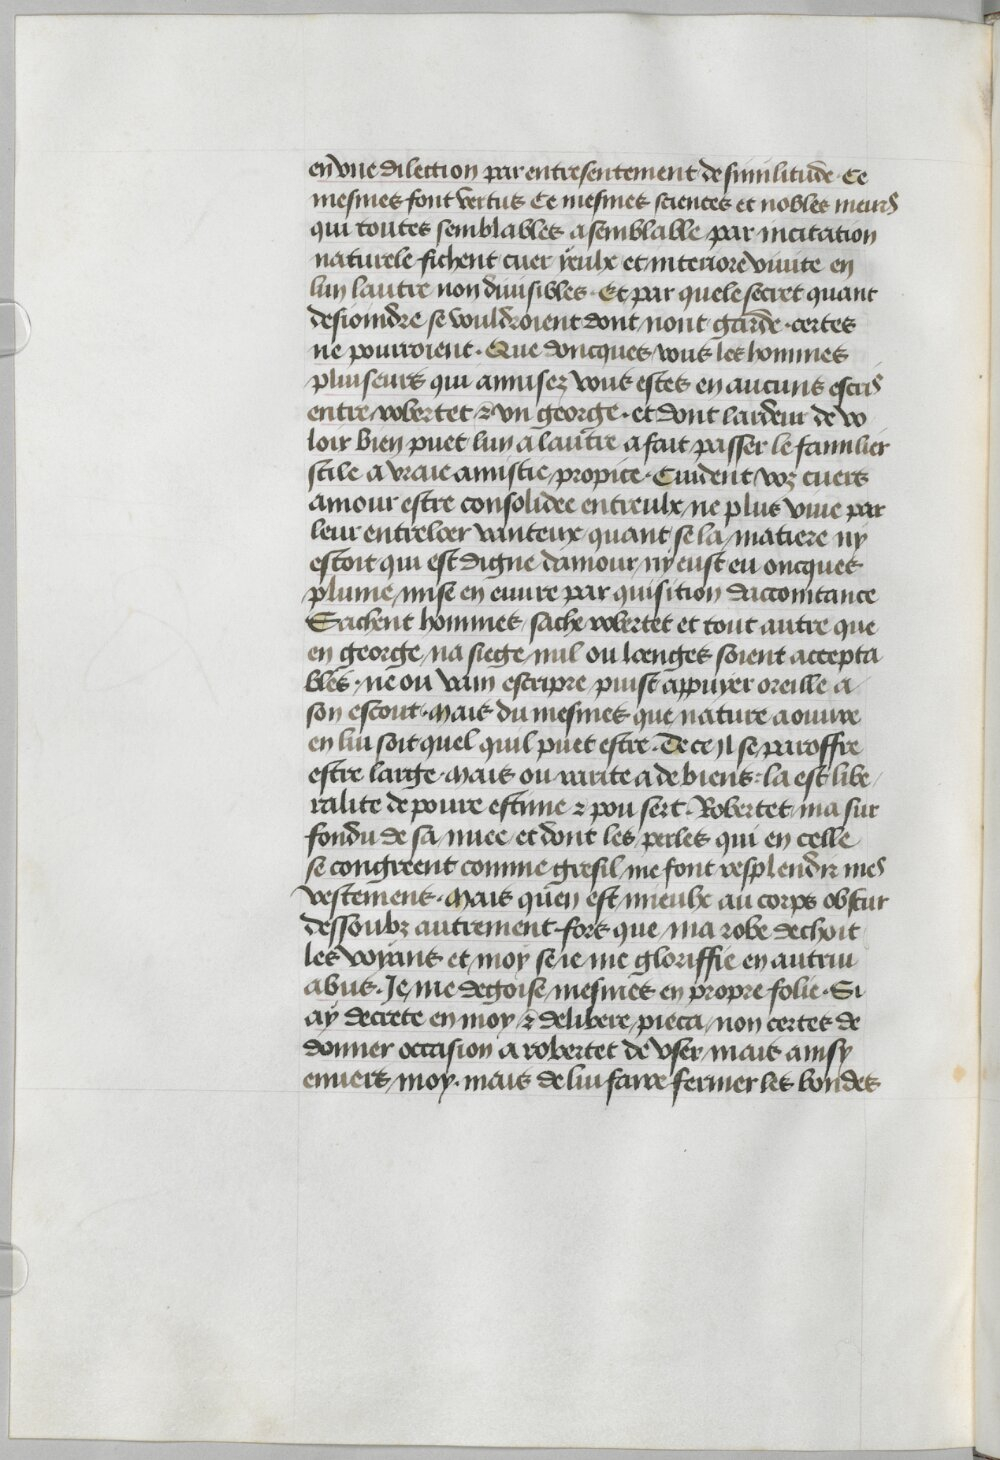 en vne dilection par entresentement de similitude. Ce
mesmes font vertus Ce mesmes sciences et nobles meurs
qui toutes semblables a semblable par incitation
naturele fichent cuer yeulx et interiore viuite en
lun lautre non diuisibles. Et par quele secret quant
desioindre se vouldroient dont nont garde. certes
ne pourroient. Que doncques vous les hommes
pluiseurs qui amusez vous estes en aucuns escris
entre robertet & vn george. et dont lardeur de vo
loir bien puet lun a lautre a fait passer le familier
stile a vraie amistie propice. Cuident voz cuers
amour estre consolidee entreulx ne plus viue par
leur entreloer vanteux quant se la matiere ny
estoit qui est digne damour ny eust eu oncques
plume mise en euure par quisition daccointance
Sachent hommes sache robertet et tout autre que
en george na siege nul ou loenges soient accepta
bles. ne ou vain escripre puist appuyer oreille a
son escout. Mais du mesmes que nature a ouure
en lui soit quel quil puet estre. De ce Il se paroffre
estre large. Mais ou rarite a de biens. la est libe
ralite de poure estime & pou sert. Robertet ma sur
fondu de sa nuee et dont les perles qui en celle
se congreent comme gresil me font resplendir mes
vestemens. Mais quen est mieulx au corps obscur
dessoubz autrement fors que ma robe dechoit
les voyans et moy se ie me gloriffie en autrui
abus. Je me degoise mesmes en propre folie. Si
ay decrete en moy & delibere pieca non certes de
donner occasion a robertet de vser mais ainsy
enuers moy. mais de lui faire fermer les bondes